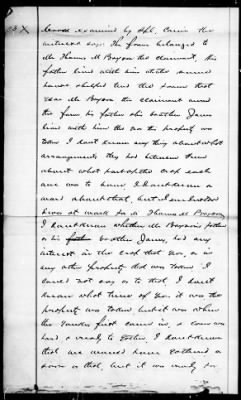 Cross examined by Spl. Com the
witness says. The farm belonged to
Mr Thomas M Brazon the claimant, his
father lived with him
house and the
year Mr Brazon the claimant owned
the farm his father his brother James
lived with him the year the property was
taken I don't know any thing about what
arrangements they had between them
about what part of the crop each
one was to have. I don't know a
word about that, but I
at work for Mr Thomas M Brazon,
I don't know whether Mr Brazon's father
or his brother James, had any
interest in the crop that year, or in
any other property did was taken I
could not say as to that, I don't
know what time of year it was the
property was taken but it was when
the Yankies first came in, & corn was
hard & ready to gather. I don't know
that we would have gathered a
corn or that, but it was ready for